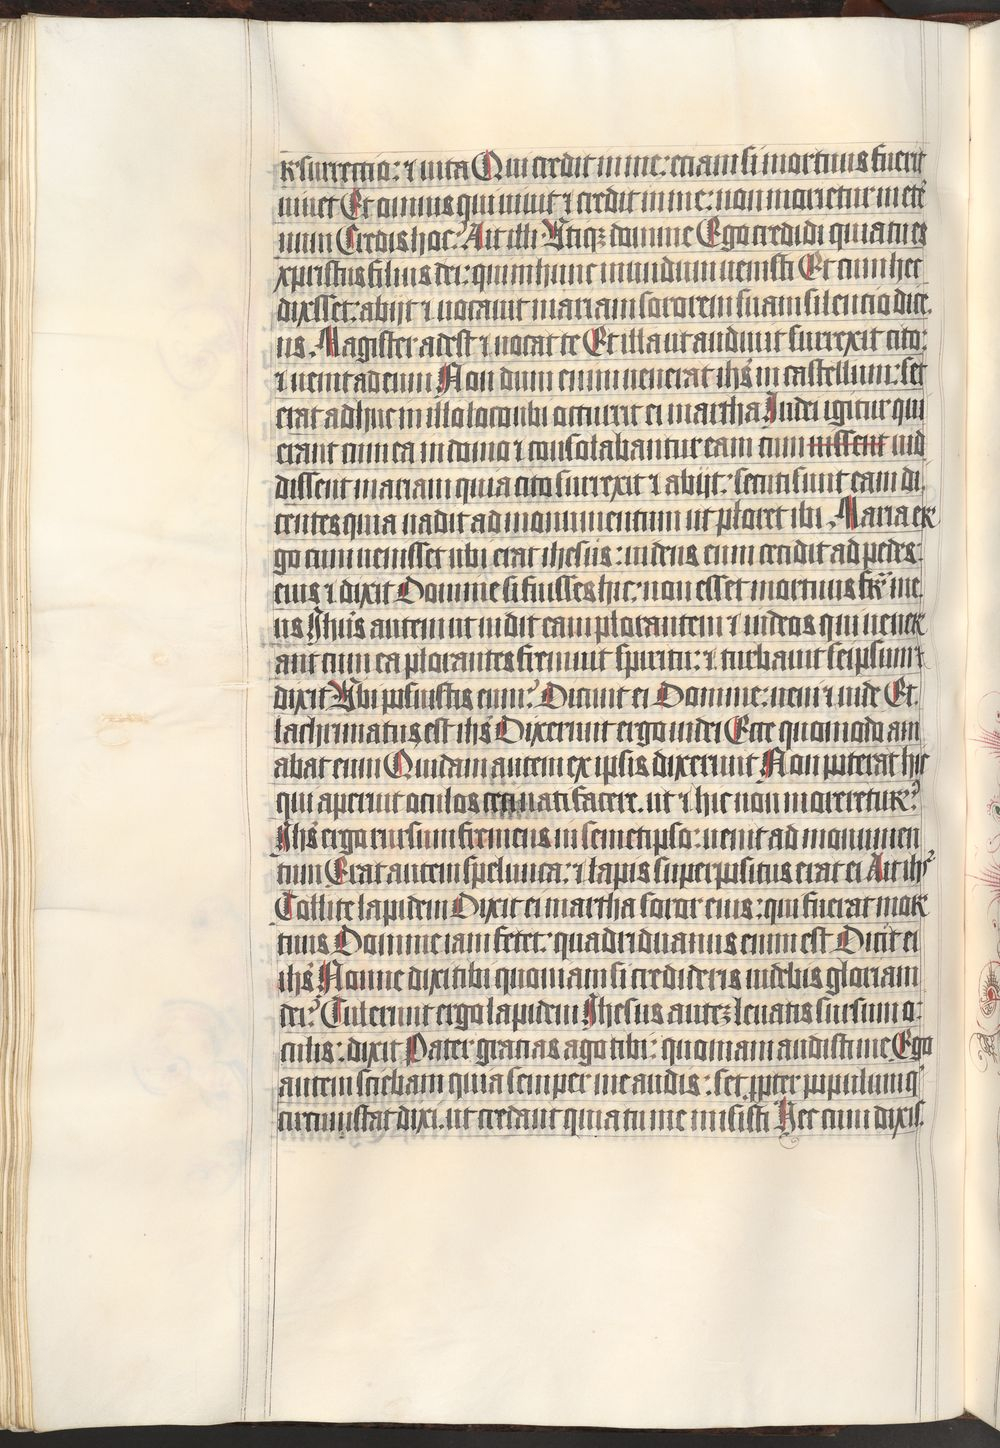 resurrectio: ⁊ uita Qui credit in me: eciam si mortuus fuerit
uiuet Et omnis qui uiuit ⁊ credit in me: non morietur in eter̄
num Credis hoc? Ait illi Vtiqꝫ domine Ego credidi quia tu es
xpristus filius dei: qui in hunc mundum uenisti Et cum hec
dixisset: abijt ⁊ uocauit mariam sororem suam silencio dice.
ns. Magister adest ⁊ uocat te Et illa ut audiuit surrexit cito:
⁊ uenit ad eum Non dum enim uenerat ihs̄ in castellum: set
erat adhuc in illo loco ubi occurrit ei martha Iudei igitur qui
erant cum ea in domo ⁊ consolabantur eam cum uissent uid
dissent mariam quia cito surrexit ⁊ abijt: secuti sunt eam di.
centes quia uadit ad monumentum ut ploret ibi. Maria er
go cum uenisset ubi erat ihesus: uidens eum cecidit ad pedes:
eius ⁊ dixit Domine si fuisses hic: non esset mortuus fr̄ me.
us Ihūs autem ut uidit eam plorantem ⁊ iudeos qui uener
ant cum ea plorantes fremuit spiritu: ⁊ turbauit seipsum ⁊
dixit Vbi posuistis eum? Dicunt ei Domine: ueni ⁊ uide Et.
lachrimatus est ihs̄ Dixerunt ergo iudei Ecce quomodo am
abat eum Quidam autem ex ipsis dixerunt Non poterat hic
qui aperuit oculos ceci nati facere. ut ⁊ hic non moreretur?
Ihs̄ ergo rursum fremens in semetipso: uenit ad monumen
tum Erat autem spelunca: ⁊ lapis superpositus erat ei Ait ihs̄
Tollite lapidem Dixit ei martha soror eius: qui fuerat mor
tuus Domine iam fetet: quadriduanus enim est Dicit ei
ihs̄ Nonne dixi tibi quoniam si credideris uidebis gloriam
dei? Tulerunt ergo lapidem Ihesus auteꝫ leuatis sursum o:
culis: dixit Pater gracias ago tibi: quoniam audisti me Ego
autem sciebam quia semper me audis: set ꝓpter populum q̄
circumstat dixi. ut credant quia tu me misisti Hec cum dixis.